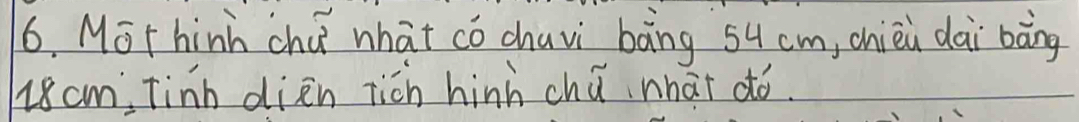 6. Một hình chữ nhật có chu vi bằng 54 cm, chiều dài bằng
18 cm. Tính diện tích hình chữ nhật đó.